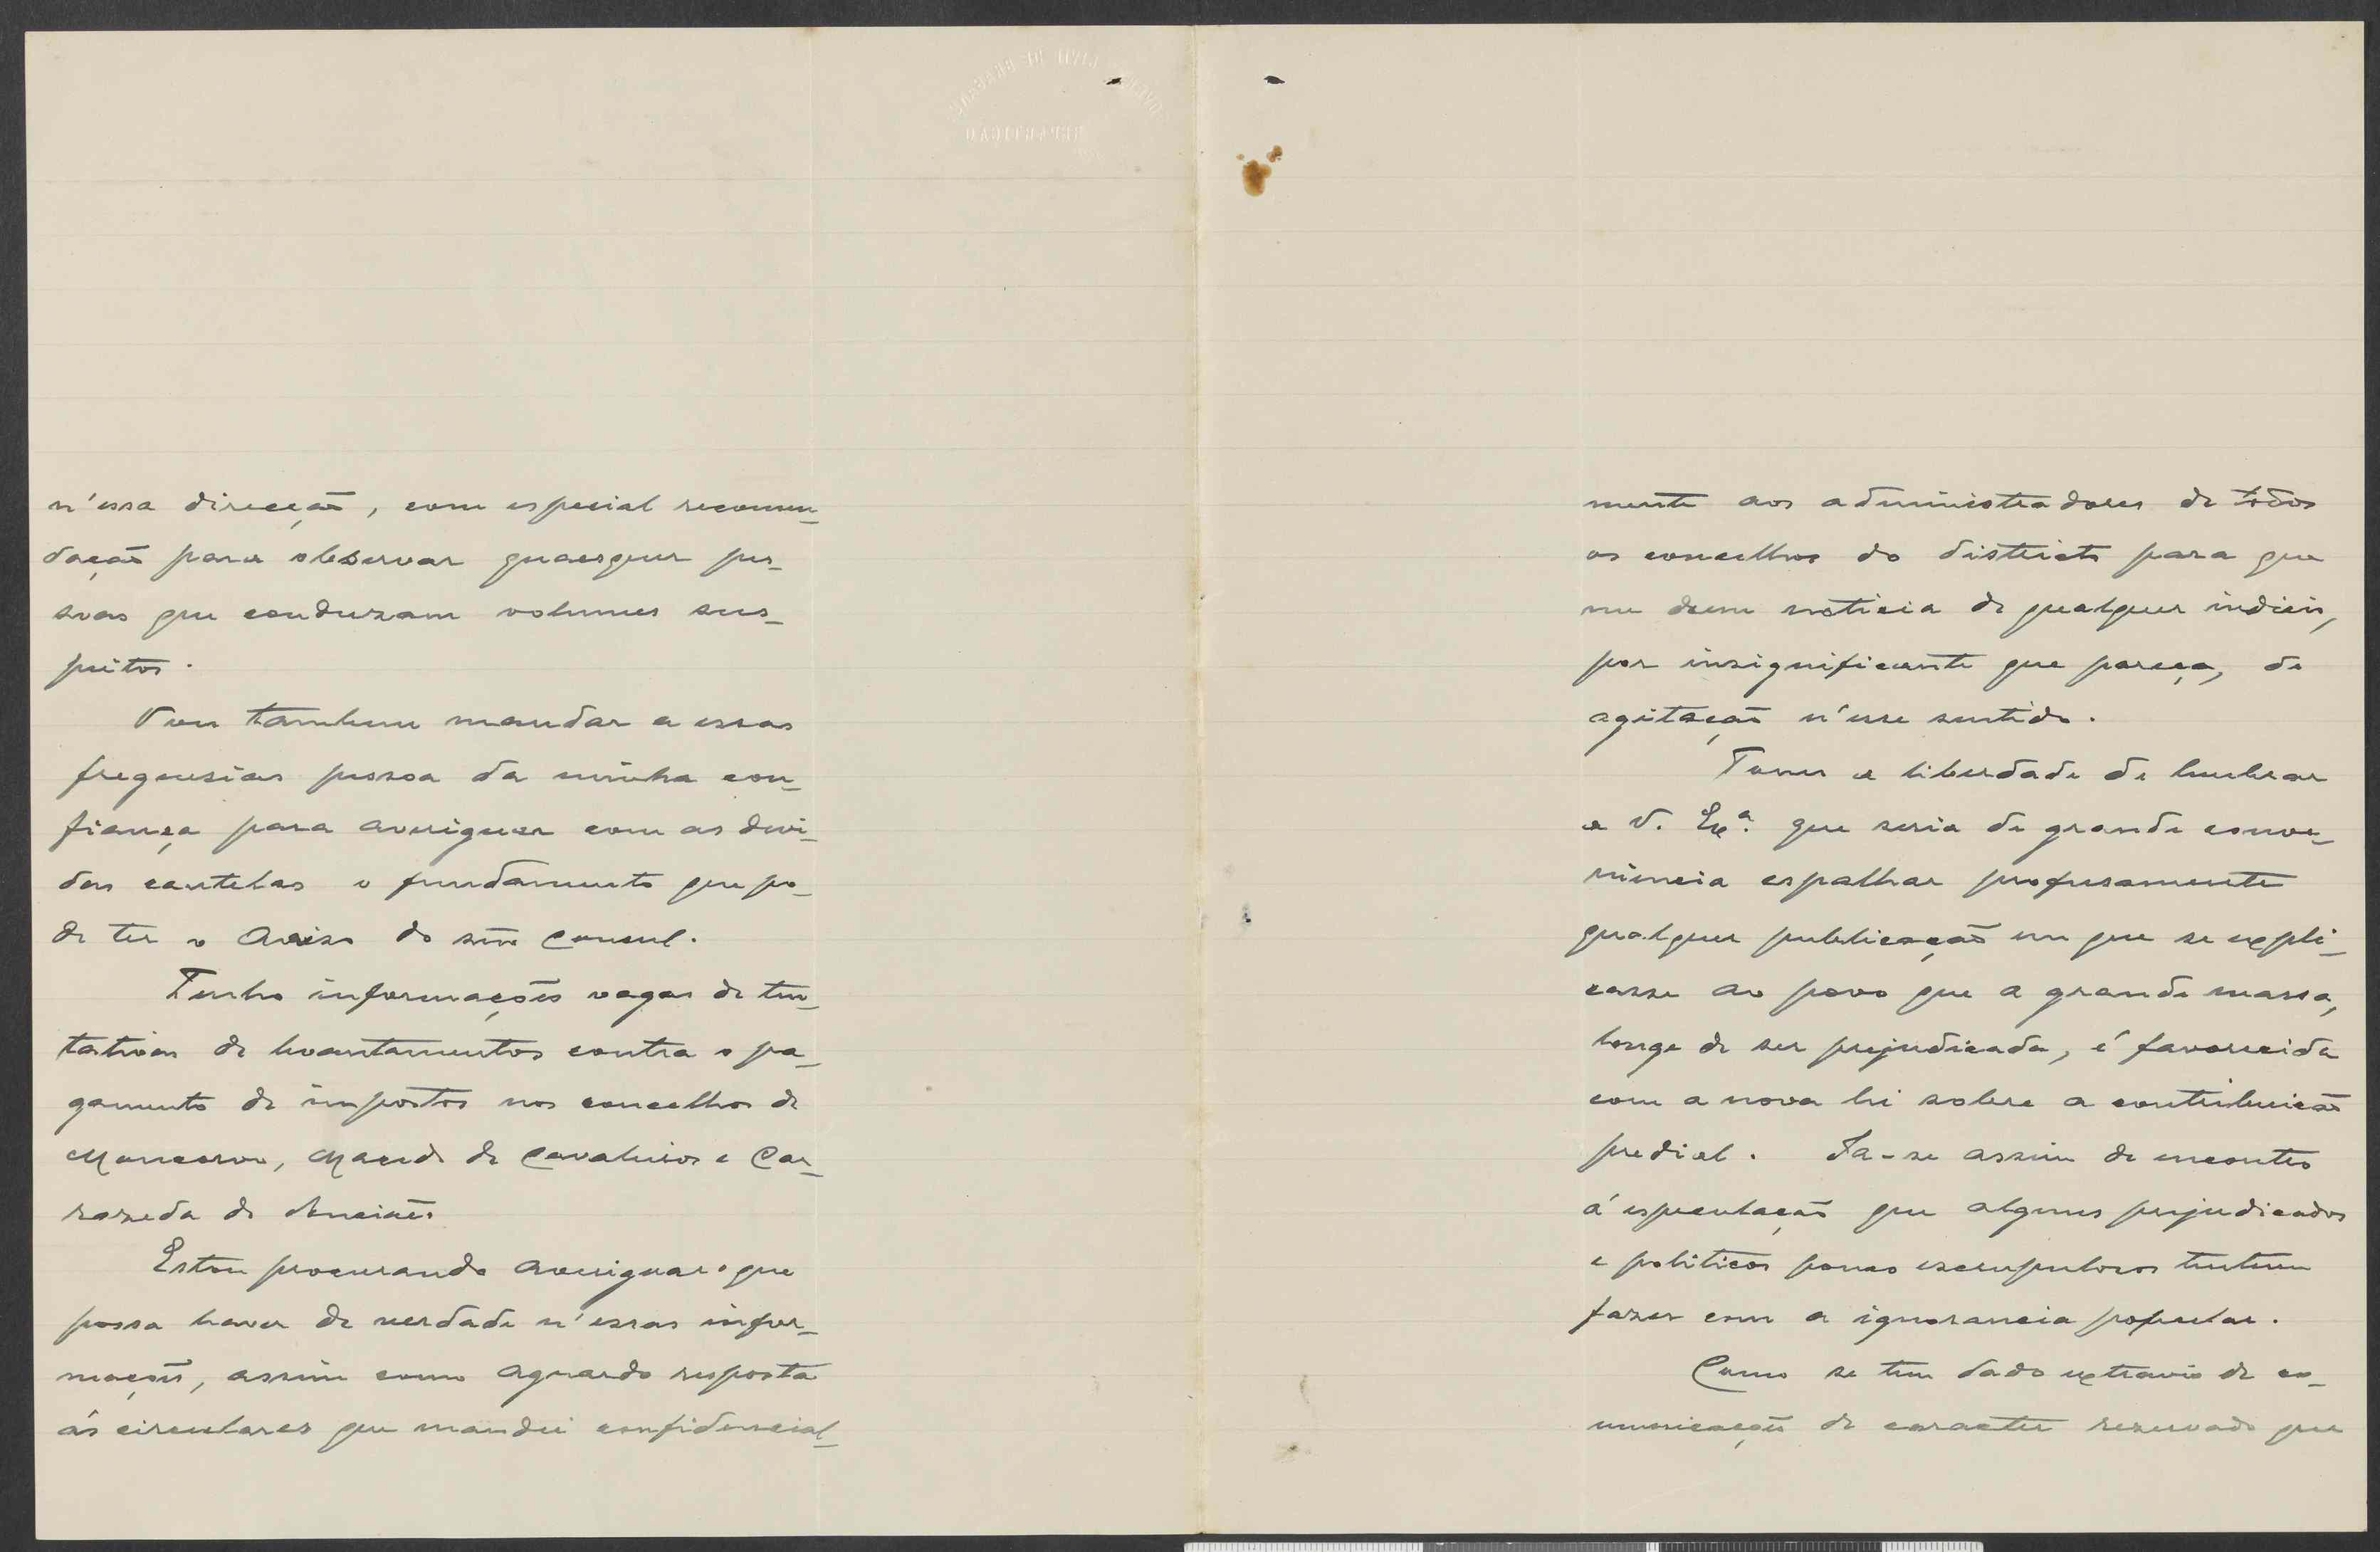 n'essa direcção, com especial recomen-
dação para observar quaesquer pes-
soas que conduzam volumes sus-
peitos.
Vou tambem mandar a essas
freguesias pessoa da minha con-
fiança para averiguar com as devi-
das cautelas o fundamento que po-
de ter o aviso do snr. consul.
Tenho informações vagas de ten-
tativas de levantamentos contra o pa-
gamento de impostos nos concelhos de
Moncorvo, Macedo de Cavaleiros e Car-
razeda de Anciães.
Estou procurando averiguar o que
possa haver de verdade n'essas infor-
mações, assim como aguardo resposta
ás circulares que mandei confidencial-
mente aos administradores de todos
os concelhos do districto para que
me deem noticia de qualquer indicio,
por insignificante que pareça, de
agitação n'esse sentido.
Tomo a liberdade de lembrar
a V. Exª. que seria de grande conve-
niencia espalhar profusamente
qualquer publicação em que se expli-
casse ao povo que a grande massa,
longe de ser prejudicada, é favorecida
com a nova lei sobre a contribuição
predial. Ia-se assim de encontro
á especulação que alguns prejudicados
e politicos pouco escrupulosos tentem
fazer com a ignorancia popular.
Como se tem dado extravio de co-
municações de caracter reservado que